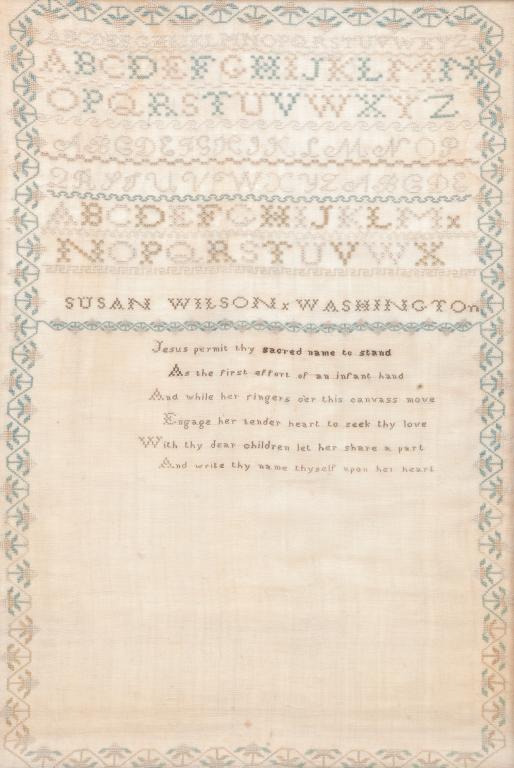 ABCDEFGHIJKLMNOPQRSTUVWXYZ
ABCDEFGHIJKLMN
OPQRSTUVWXYZ
ABCDEFGHIKLMNOP
QRSTUVWXYZABCDE
ABCDEFGHIJKLMx
NOPQRSTUVWX
SUSAN WILSONx WASHINGTOn
Jesus permit thy sacred name to stand
As the first effort of an infant hand
And while her fingers o'er this canvass move
Engage her tender heart to seek thy love
With thy dear children let her share a part
And write thy name thyself upon her heart